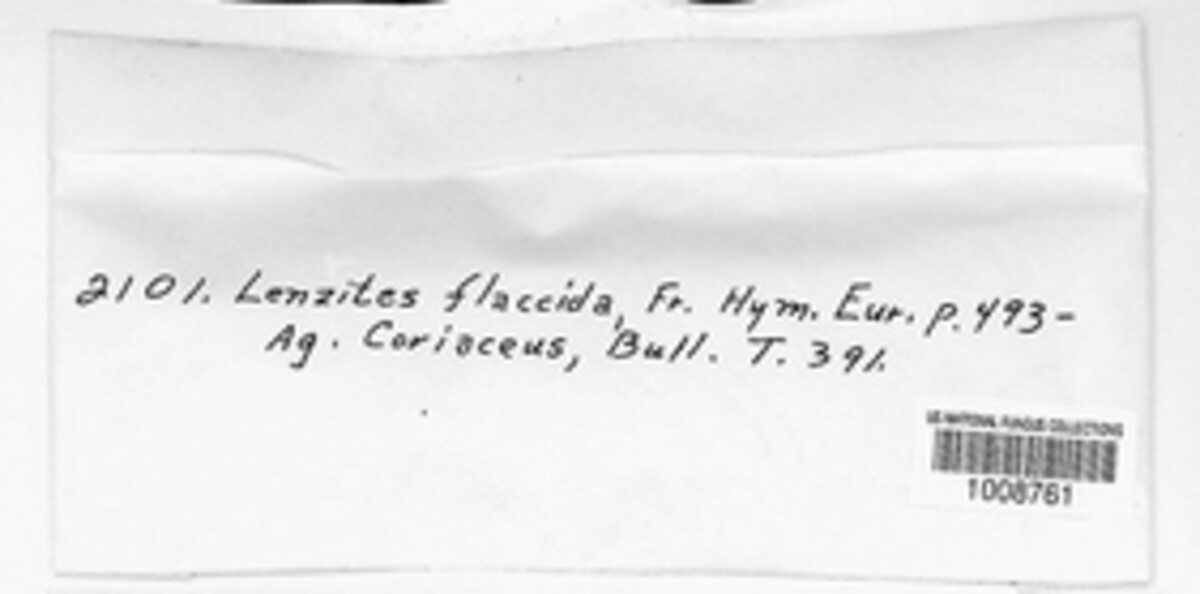 2101. Lenzites flaccida, Fr. Hym. Eur. p. 493 -
Ag. Coriaceus, Bull. T. 391.
US NATIONAL FUNGUS COLLECTIONS
1008761